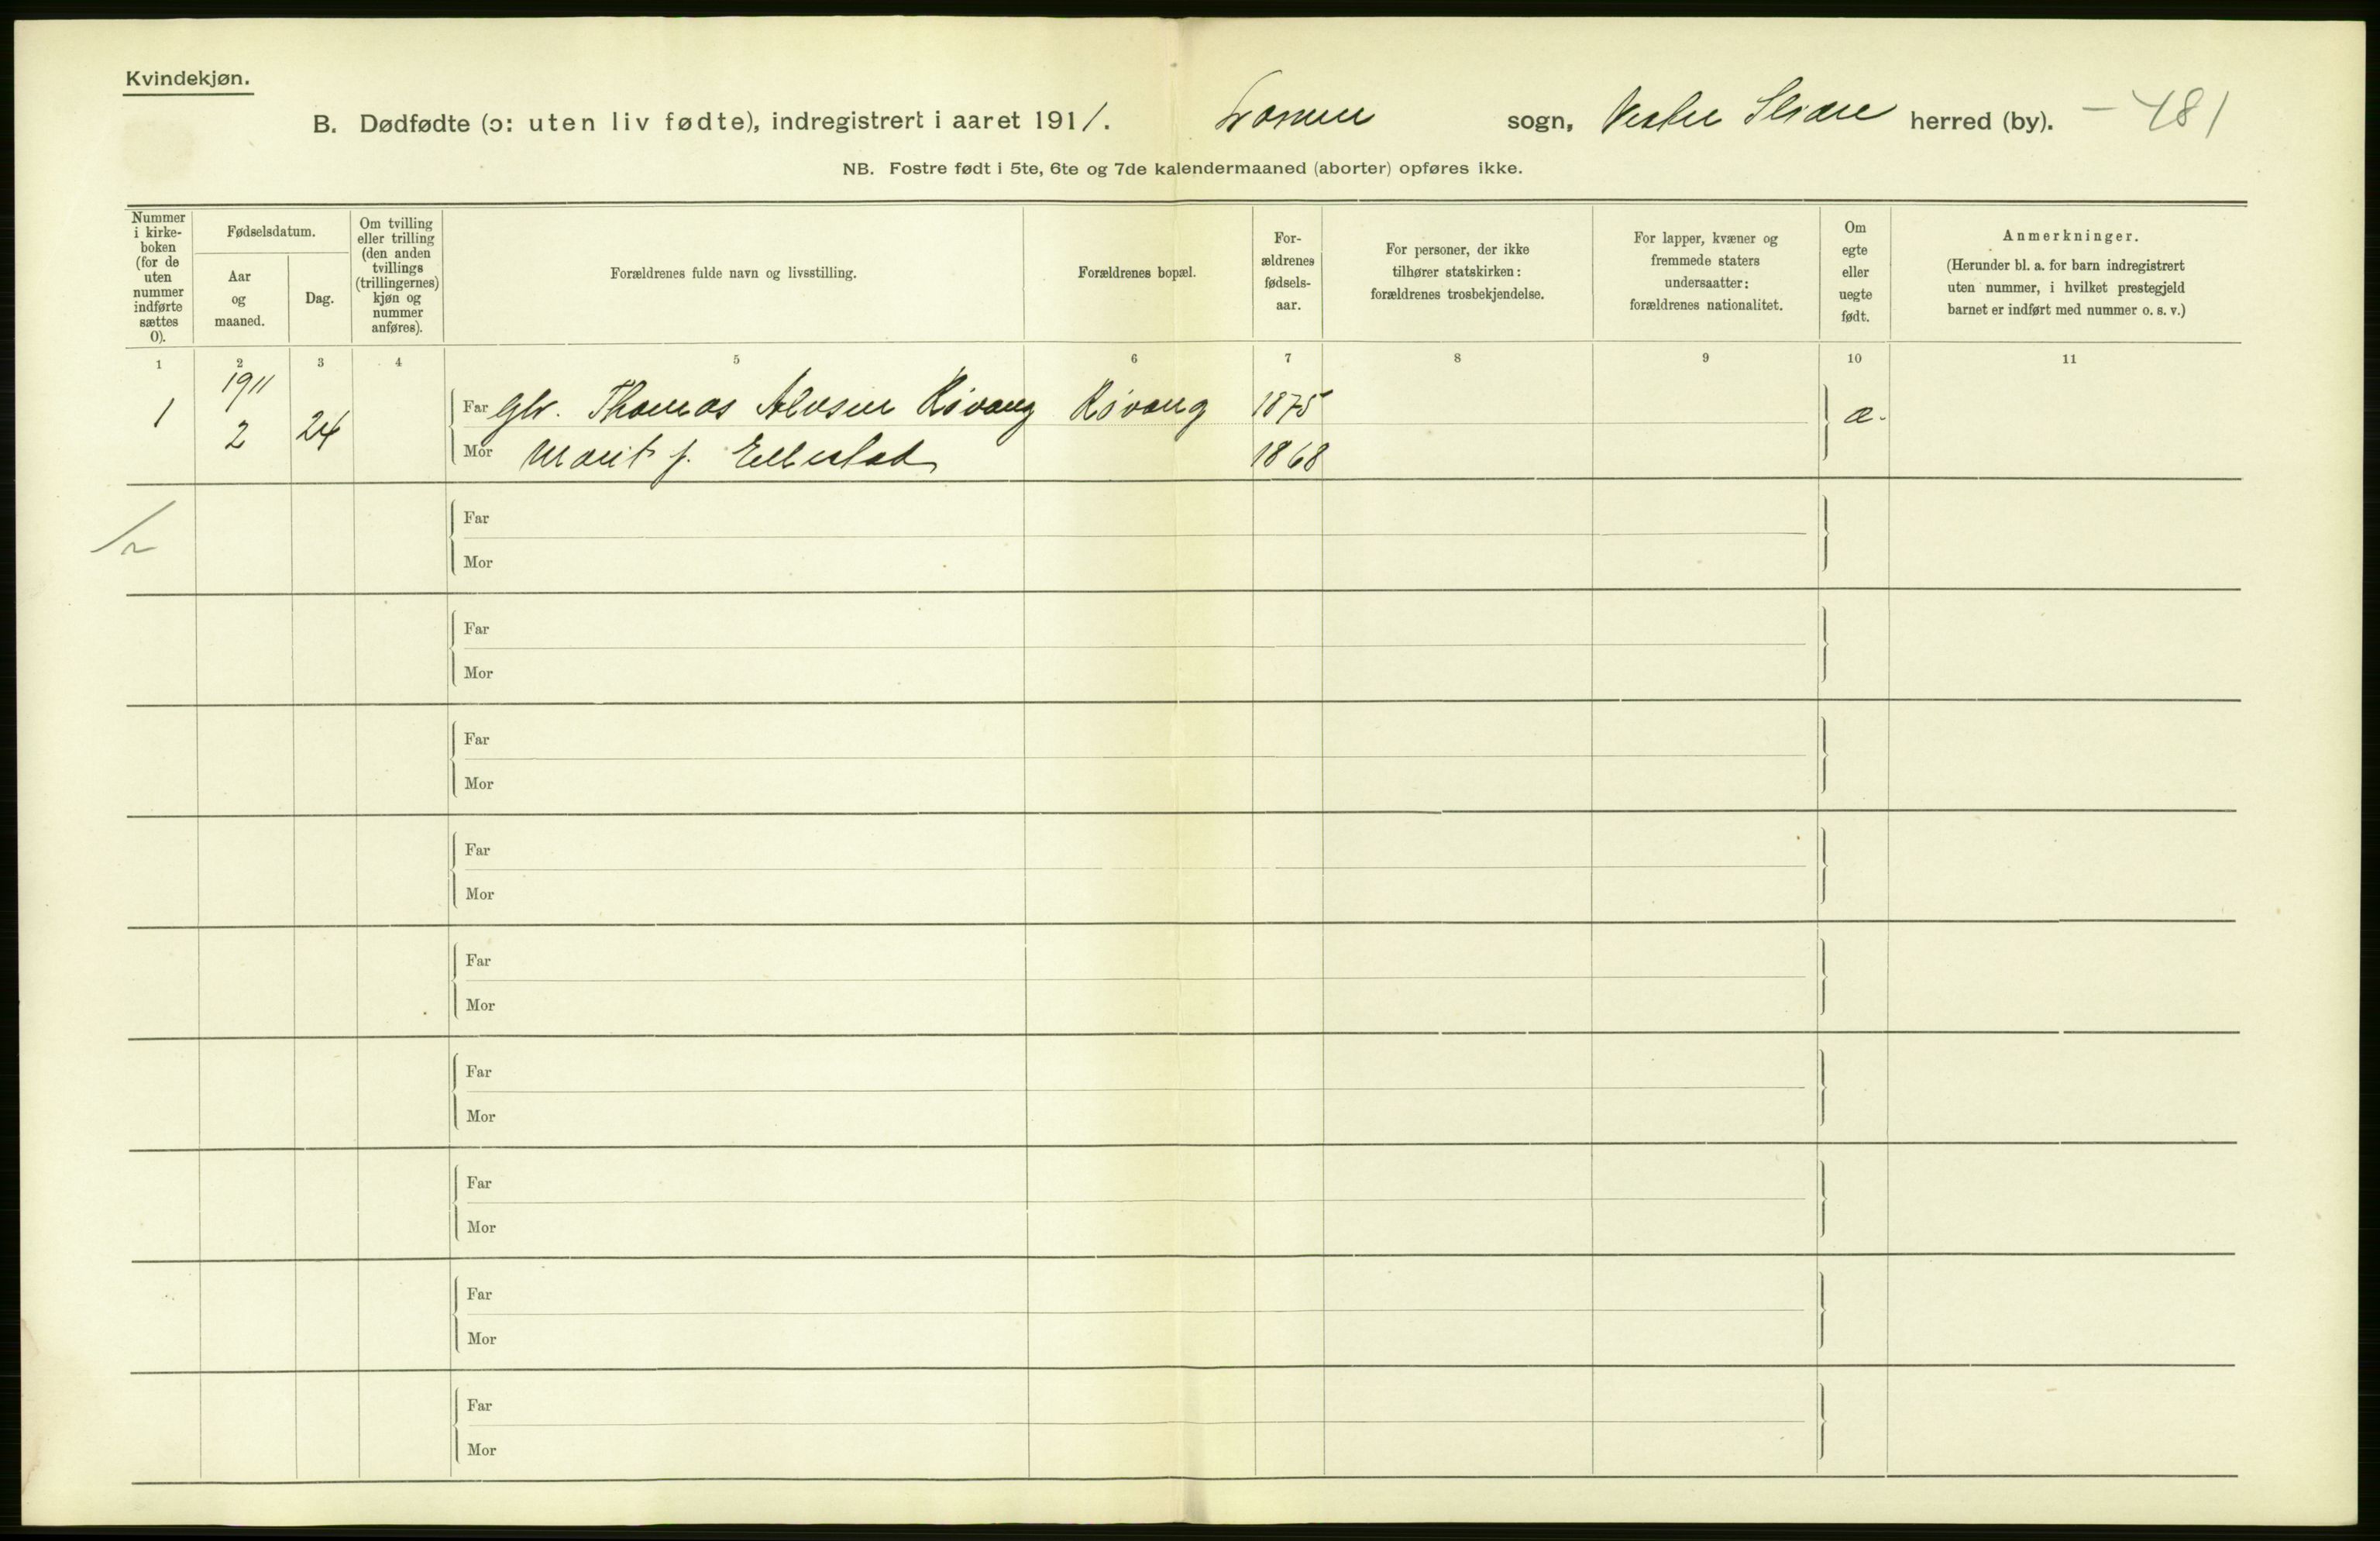 Kvindekjøn.
B. Dødfødte (ɔ: uten liv fødte), indregistrert i aaret 1911. Lomen sogn, Vestre Slidre herred (by). – 481
NB. Fostre født i 5te, 6te og 7de kalendermaaned (aborter) opføres ikke.
Nummer i kirke-boken (for de uten nummer indførte sættes 0).
Fødselsdatum.
Aar og maaned.
Dag.
Om tvilling eller trilling (den anden tvillings (trillingernes) kjøn og nummer anføres).
Forældrenes fulde navn og livsstilling.
Forældrenes bopæl.
For-ældrenes fødsels-aar.
For personer, der ikke tilhører statskirken: forældrenes trosbekjendelse.
For lapper, kvæner og fremmede staters undersaatter: forældrenes nationalitet.
Om egte eller uegte født.
Anmerkninger.
(Herunder bl. a. for barn indregistrert uten nummer, i hvilket prestegjeld barnet er indført med nummer o. s. v.)
1 2 3 4 5 6 7 8 9 10 11
1911
1 2 24 Far Thomas Røvang Røvang 1875 æ.
Mor Marit f. Ellestad 1868
Far
Mor
Far
Mor
Far
Mor
Far
Mor
Far
Mor
Far
Mor
Far
Mor
Far
Mor
Far
Mor